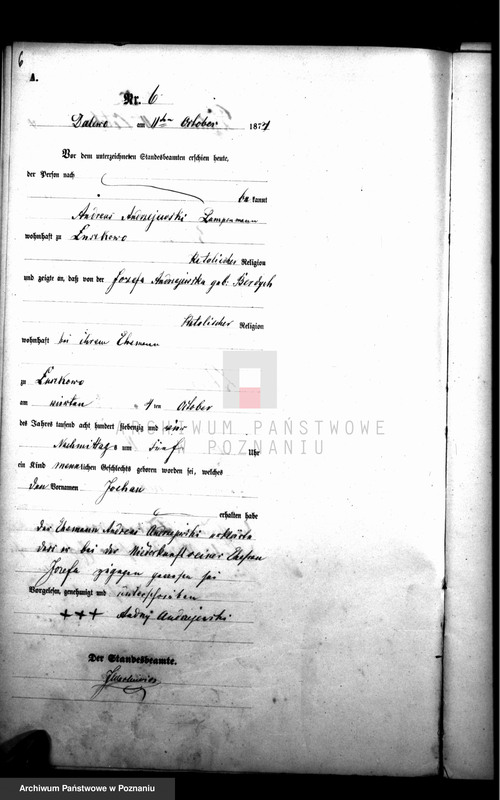 6
A.
Nr. 6
Dalewo am 11ten October 1874
Vor dem unterzeichneten Standesbeamten erschien heute,
der Person nach
bekannt
Andreas Andrzejewski
wohnhaft zu Luszkowo
Katolischer Religion
und zeigte an, daß von der Jozefa Andrzejewska geb.
Katolischer Religion
wohnhaft bei ihrem Ehemann
zu Luszkowo
am vierten 4 ten October
des Jahres tausend acht hundert siebenzig und vier
Nachmittags um fünf Uhr
ein Kind männlichen Geschlechts geboren worden sei, welches
den Vornamen Johan
erhalten habe
der Ehemann Andreas Andrzejewski erklärte
dass er bei der Niederkunft seiner Ehefrau
Jozefa zugegen gewesen sei
Vorgelesen, genehmigt und unterschrieben
+++ Andrzej Andrzejewski
Der Standesbeamte.
ARCHIWUM PAŃSTWOWE
W POZNANIU
Archiwum Państwowe w Poznaniu